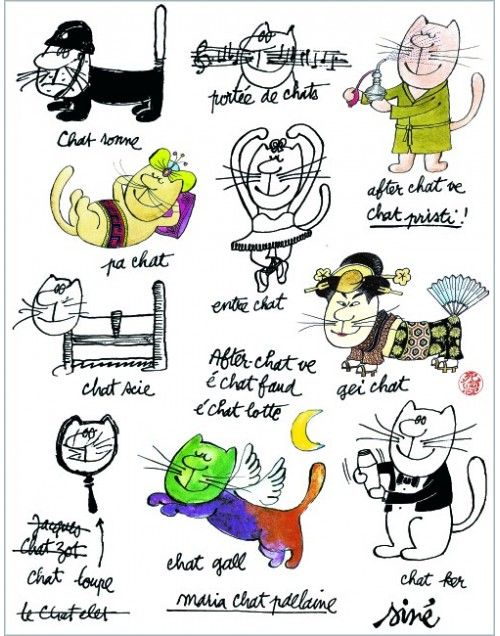 chat sonne
portée de chats
after chat ve
chat pristi !
pa chat
entre chat
chat scie
After-chat ve
é chat faud
é chat lotte
gei chat
Jacques
Chat Zot
chat loupe
le Chatelet
chat gall
maria chat pdelaine
chat ker
siné